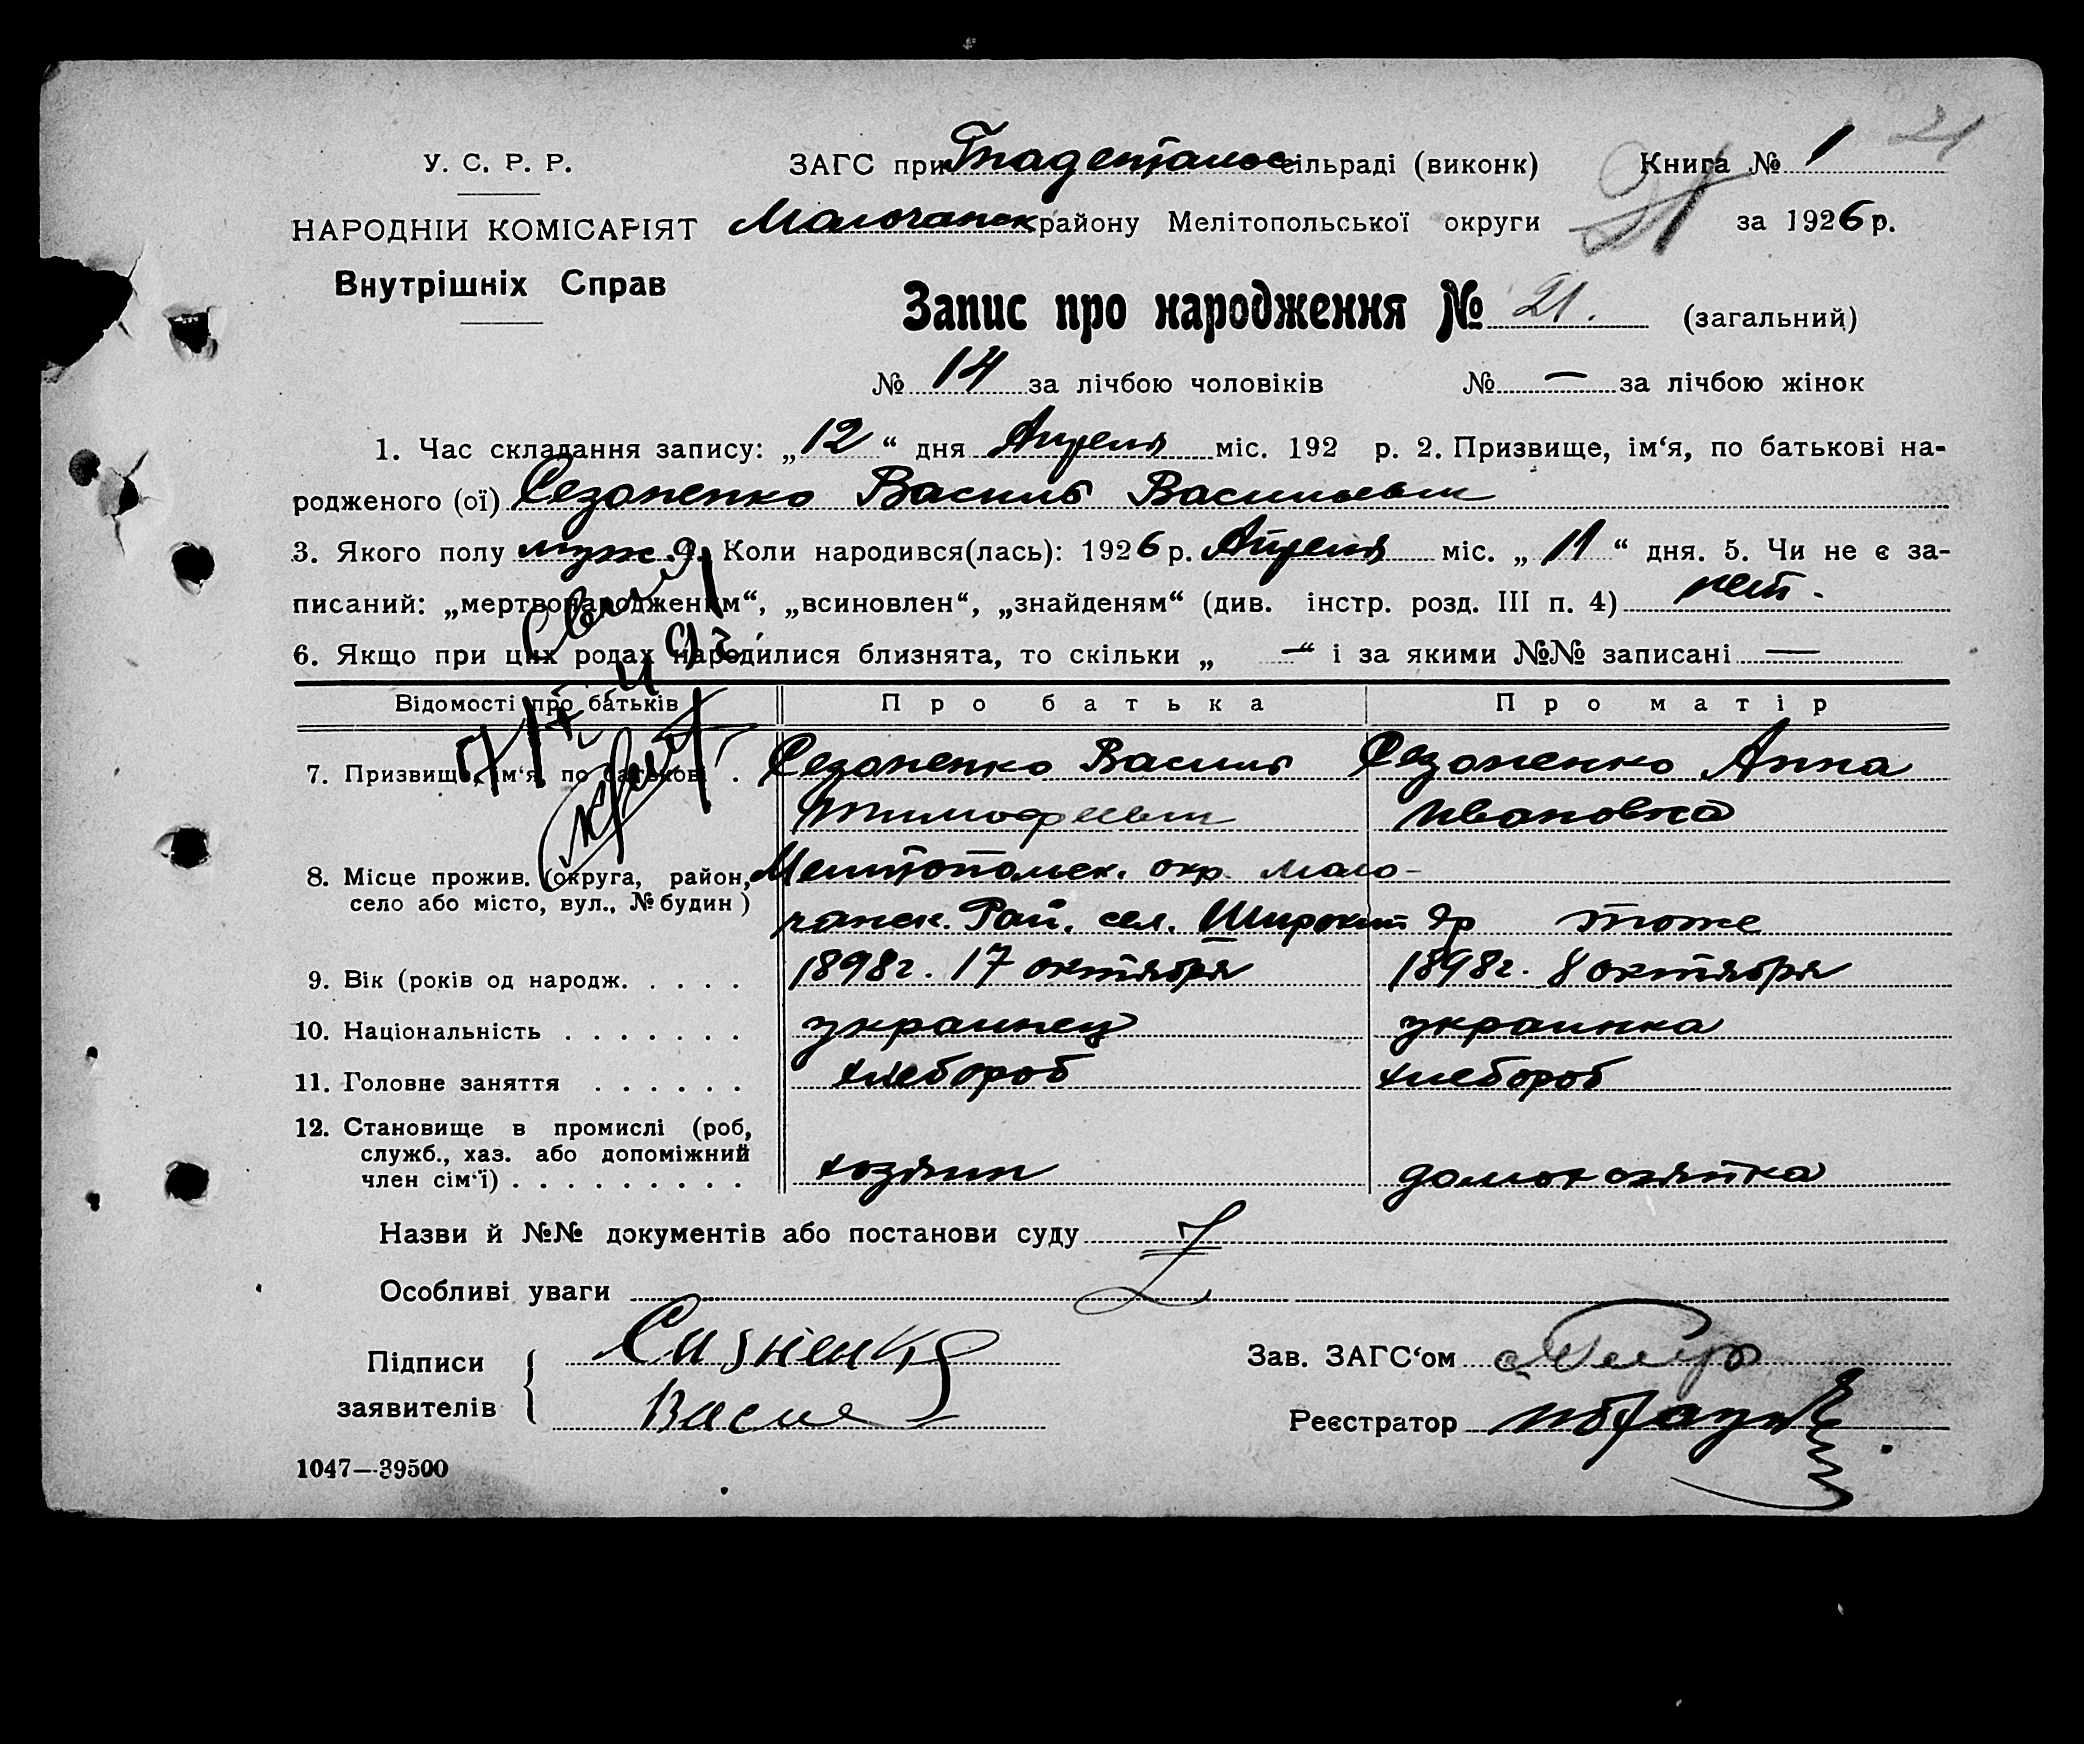 21
У. С. Р. Р.
ЗАГС при Гнадентальс сільраді (виконк)
Книга № 1
21
НАРОДНІЙ КОМІСАРІЯТ
Молочанск району Мелітопольської округи
за 1926 р.
Внутрішніх Справ
Запис про народження № 21. (загальний)
№ 14 за лічбою чоловіків № — за лічбою жінок
1. Час складання запису: „12“ дня Апреля міс. 192 р. 2. Призвище, ім‘я, по батькові на-
родженого (ої) Сезоненко Василь Васильевич
3. Якого полу муж. 4. Коли народився(лась): 1926 р. Апреля міс. „11“ дня. 5. Чи не є за-
писаний: „мертвонародженим“, „всиновлен“, „знайденям“ (див. інстр. розд. III п. 4) нет.
6. Якщо при цих родах народилися близнята, то скільки „ —“ і за якими №№ записані —
Відомості про батьків
Про батька
Про матір
7. Призвище, ім‘я, по батькові . Сезоненко Василь Сезоненко Анна
Тимофеевич Ивановна
8. Місце прожив. (округа, район, Мелитопольск. окр. Моло-
село або місто, вул., № будин) чанск. Рай. сел. Широкий Яр тоже
9. Вік (років од народж. . . . . 1898г. 17 октября 1898г. 8 октября
10. Національність . . . . . . . украинец украинка
11. Головне заняття . . . . . . хлебороб хлебороб
12. Становище в промислі (роб,
служб., хаз. або допоміжний
член сім‘ї) . . . . . . . . . хозяин домохозяйка
Назви й №№ документів або постанови суду
Особливі уваги
Підписи
заявителів
Сизненко
Васил
Зав. ЗАГС‘ом
Реєстратор
1047—39500